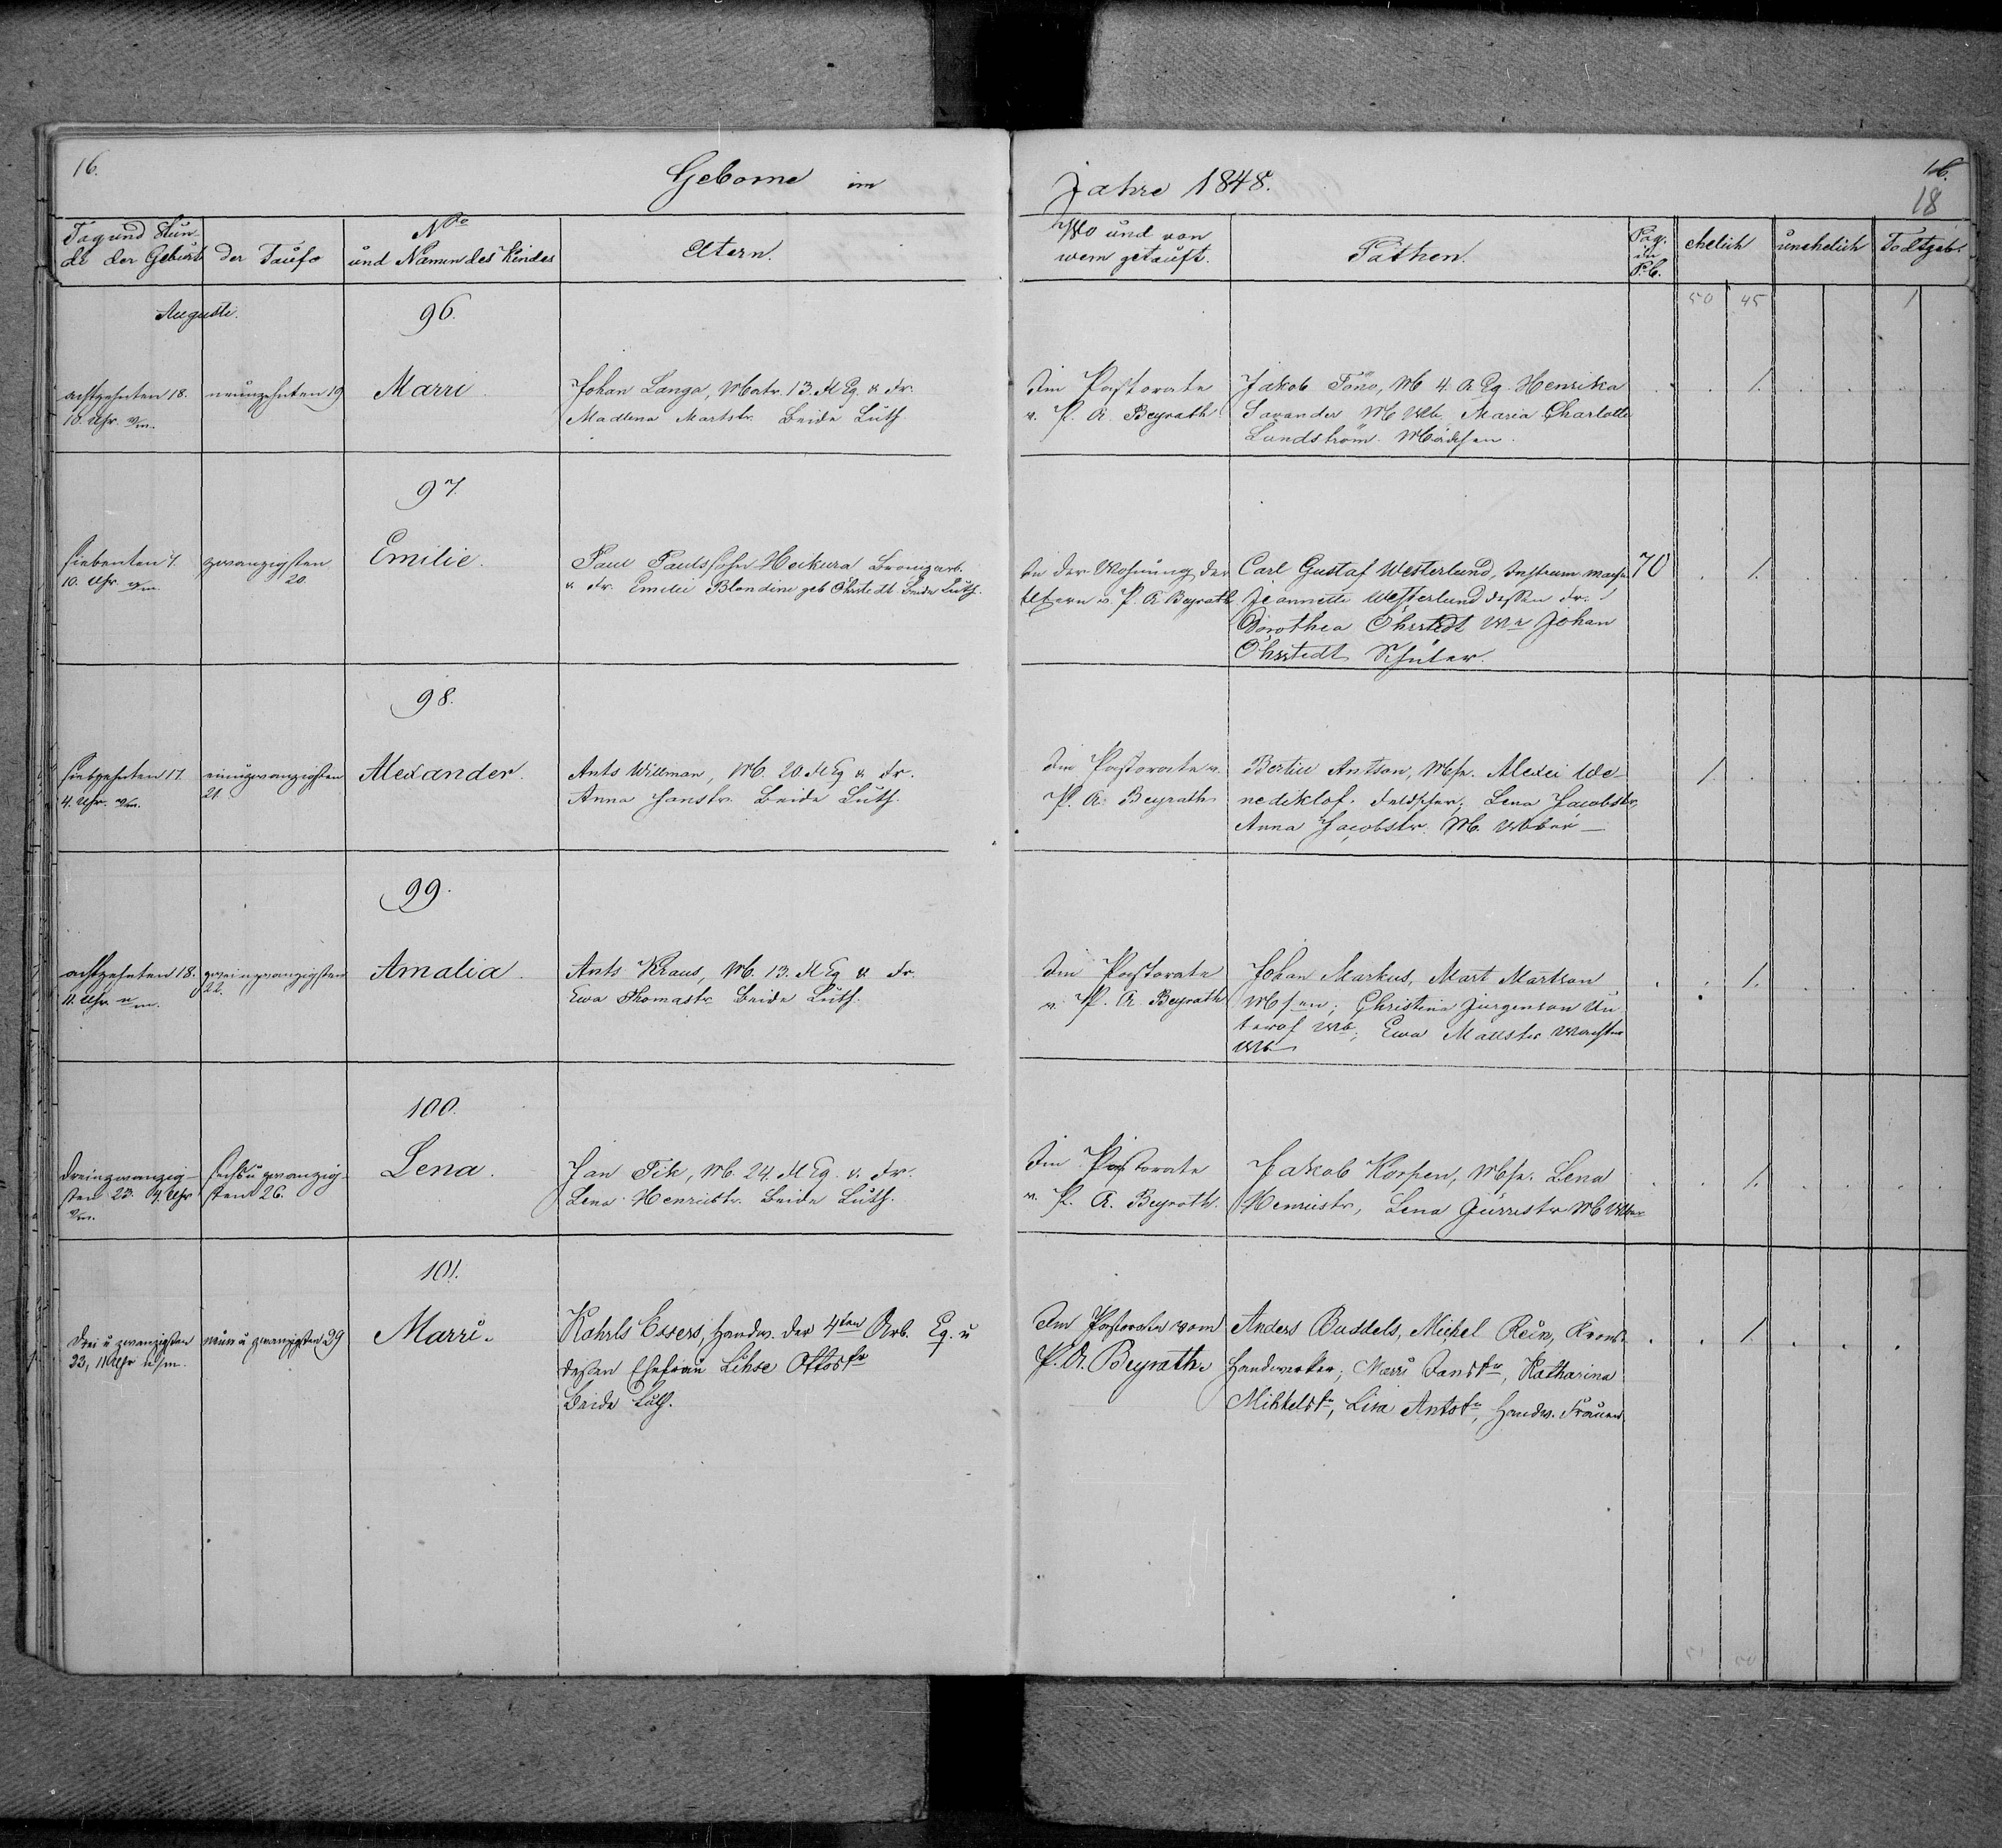 16.
Geborne im
Jahre 1848.
16.
18
Tag und Stun-
de der Geburt
der Taufe
No
und Namen des Kindes
Eltern.
Wo und von
wem getauft.
Pathen.
Pag.
P.C.
ehelich
unehelich
Todtgeb.
50 45 1
Augusti.
96.
achtzehnten 18.
10. Uhr Vm.
neunzehnten 19
Marri
Johan Langa, Matr. 13. Fl Eq. u. Fr.
Madlena Martstr. Beide Luth.
Im Pastorate
v. P. A. Beyrath
Jakob Töno, M 4. A. Eq. Henrika
Savander M Wb. Maria Charlotte
Lundström. Mädchen.
1.
97.
siebenten 7.
10. Uhr Vm.
zwanzigsten
20.
Emilie.
Paul Paulssohn Heikura
u. Fr. Emilie Blondine geb Öhrstedt Beide Luth.
In der Wohnung der
Eltern v. P. A Beyrath
Carl Gustaf Westerlund, Instrum. mach.
Jeannette Westerlund dessen Fr.
Dorothea Öhrstedt Johan
Öhrstedt Schüler.
70
1.
98.
siebzehnten 17.
4. Uhr. Vm.
einundzwanzigsten
21.
Alexander.
Ants Willman, M. 20. Fl Eq u. Fr.
Anna Janstr. Beide Luth.
Im Pastorate v.
P. A. Beyrath
Bertil Antson, Alexei We-
nediktof. Feldscher; Lena Jacobstr,
Anna Jacobstr. M. Weiber
1.
99.
achtzehnten 18.
11. Uhr
zweiundzwanzigsten
22.
Amalia.
Ants Kraus, M. 13. Fl Eq u. Fr.
Ewa Thomastr. Beide Luth.
Im Pastorate
v. P. A. Beyrath
Johan Markus, Mart Martson
Christina Jürgenson Un-
terof Wb; Ewa Mattstr
Wb
1.
100.
dreiundzwanzig-
sten 23. Uhr
Vm.
sechs u zwanzig-
sten 26.
Lena.
Jan Tik, M. 24. Fl Eq. u. Fr.
Lena Henristr. Beide Luth.
Im Pastorate
v. P. A. Beyrath.
Jakob Korpen, Lena
Henristr, Lena Jürristr M Weiber
1.
101.
Drei u zwanzigsten
23, 11 Uhr
neun u zwanzigsten 29
Marri.
Kahrls Essers, Handw. der 4ten Arb. Eq. u
dessen Ehefrau Lihse Ottostr
Beide Luth.
Im Pastorate vom
P. A. Beyrath.
Anders Buddels, Michel Rein, Krons
Handwerker; Marri Janstr, Katharina
Mihkelstr, Lisa Antstr, Handw. Frauen
1.